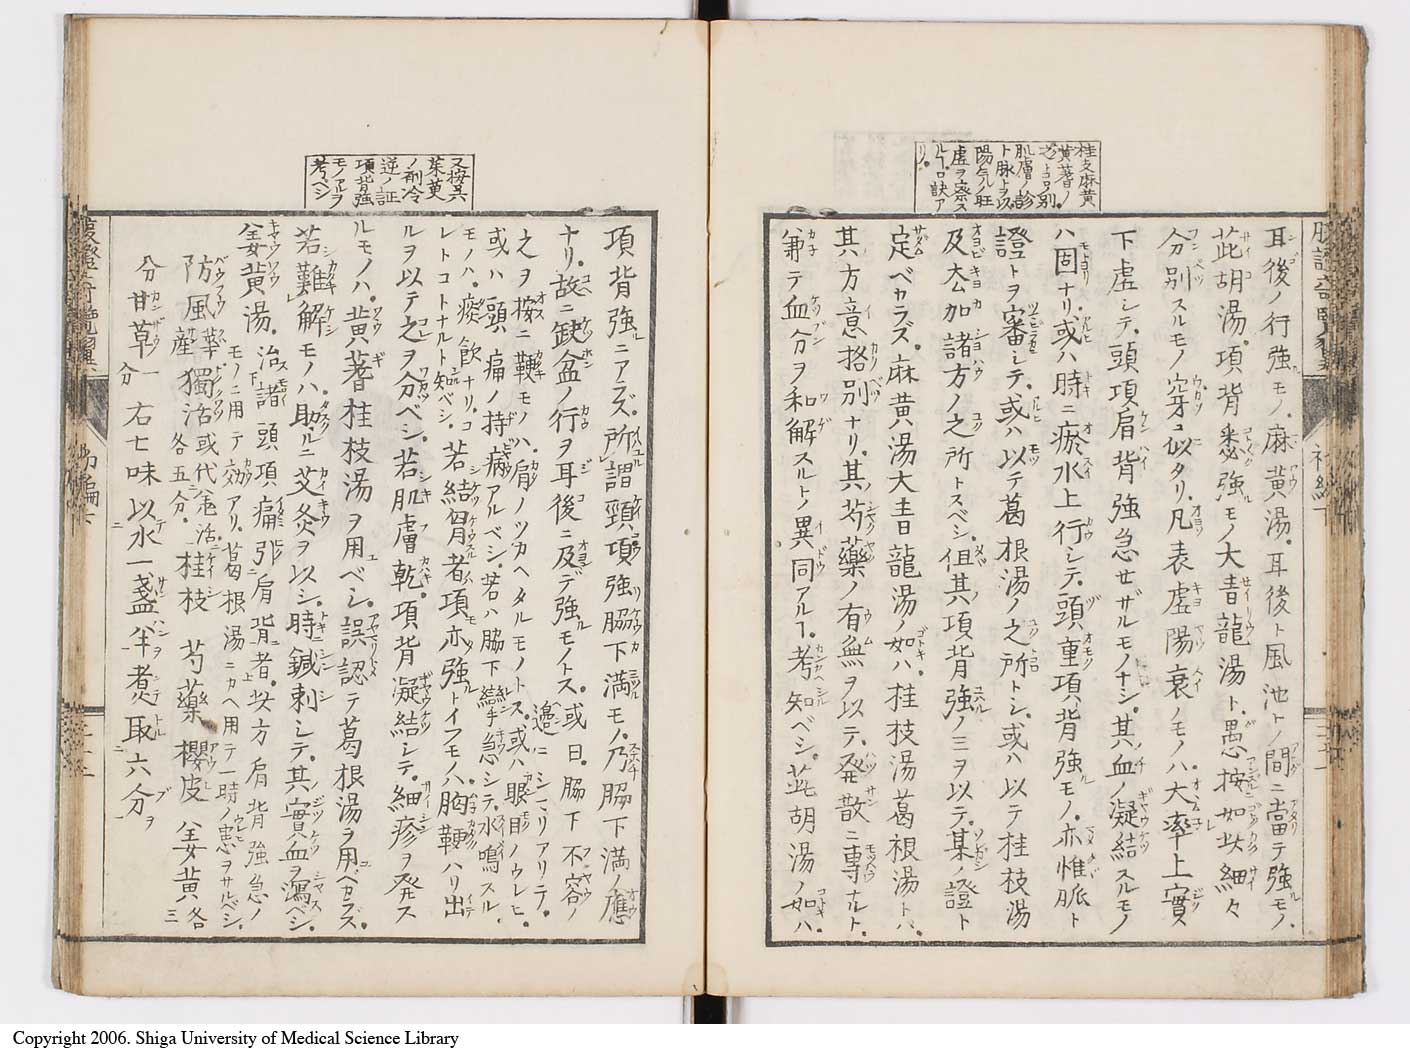 桂支麻黄
黄蓍ノ
肌膚ノ診
ト脉トヲ以
陽気ノ旺
虚ヲ察ス
ルヿ口訣ア
リ。
耳後ノ行強モノ。麻黄湯。耳後ト風池トノ間ニ當テ強モノ。
茈胡湯。項背悉強モノ大青龍湯ト。愚按如此細々
分別スルモノ穿コ似タリ。凡表虚陽衰ノモノハ大率上實
下虚シテ。頭項肩背強急セザルモノナシ。其血ノ凝結スルモノ
ハ固ナリ。或ハ時ニ瘀水上行シテ。頭重項背強モノ。亦惟脈ト
證トヲ審シテ。或ハ以テ葛根湯ノ之所トシ。或ハ以テ桂枝湯
及去加諸方ノ之所トスベシ。但其項背強ノ三ヲ以テ。某ノ證ト
定ベカラズ。麻黄湯大青龍湯ノ如ハ。桂枝湯葛根湯トハ。
其方意格別ナリ。其芍藥ノ有無ヲ以テ。発散ニ専ナルト。
兼テ血分ヲ和解スルトノ異同アルヿ。考知ベシ。茈胡湯ノ如ハ。
又按呉
茱萸
ノ剤冷
逆ノ証
項背強
モノアルヲ
考ベシ
項背強ニアラズ。所謂頸項強脇下満モノ。乃脇下満ノ應
ナリ。故ニ缺盆ノ行ヲ耳後ニ及デ強モノトス。或曰。脇下不容ノ
邉ニシマリアリテ。
之ヲ按ニ鞕モノハ。肩ノツカヘタルモノトス。或ハ眼目ノウレヒ。
或ハ頭痛ノ持病アルベシ。若ハ脇下攣急シテ。水鳴スル
モノハ。痰飲ナリ。コレトコトナルト知ベシ。若結胷者項亦強トイフモノハ胸鞕ハリ出
ルヲ以テ之ヲ分ベシ。若肌膚乾。項背凝結シテ。細疹ヲ発ス
ルモノハ。黄蓍桂枝湯ヲ用ベシ。誤認テ葛根湯ヲ用ベカラズ。
若難解モノハ。助ルニ艾灸ヲ以シ。時ニ鍼刺シテ。其實血ヲ瀉ベシ。
姜黄湯。治諸頭項痛引肩背者。方肩背強急ノ
モノニ用テ効アリ。葛根湯ニカヘ用テ一時ノ患ヲサルベシ。
防風 獨活或代羌活 各五分 桂枝 芍藥 櫻皮 姜黄各三
分 甘草一分 右七味以水一盞半煮取六分